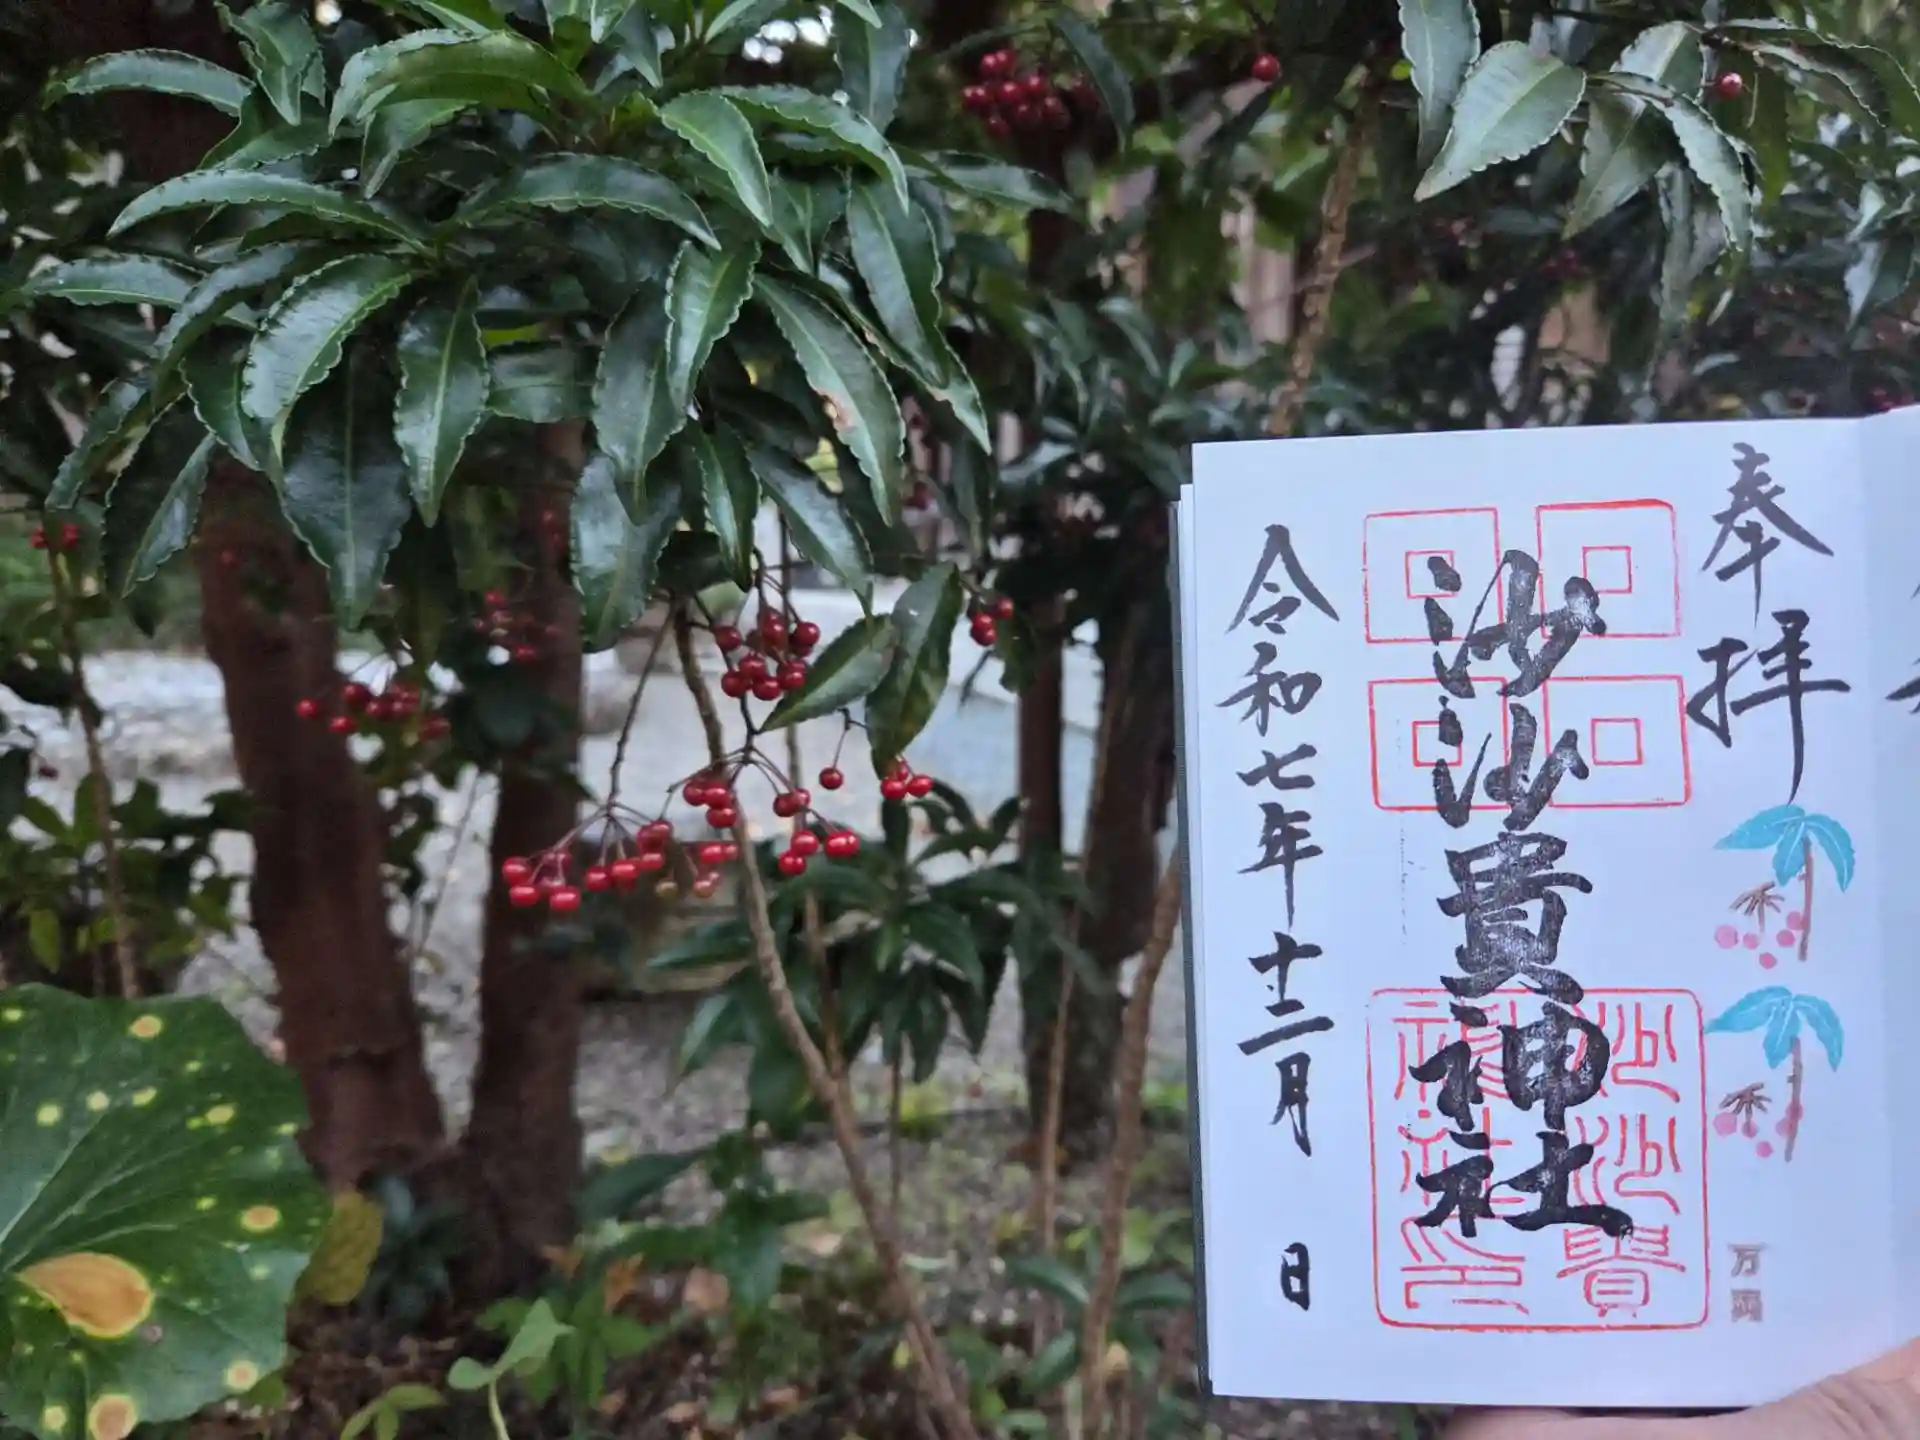 奉拝
沙沙貴神社
沙沙貴
神社印
万両
令和七年十二月 日